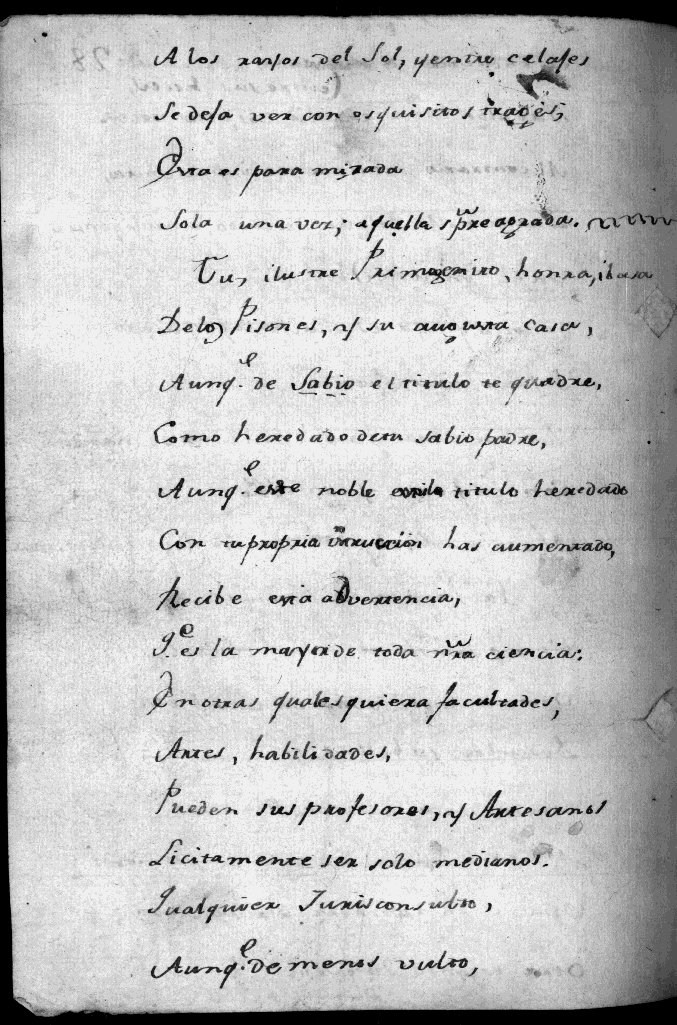 A los rayos del Sol, y entre celajes
Se deja ver con esquisitos trages;
Esta es para mirada
Sola una vez; aquella spre agrada.
Tu, ilustre Primogenito, honra, i basa
De los Pisones, y su augusta casa,
Aunq.e de Sabio el titulo te quadre,
Como heredado de tu sabio padre,
Aunq.e este noble titulo heredado
Con tu propria instruccion has aumentado,
Recibe esta advertencia,
Q.e es la mayor de toda nra ciencia:
En otras qualesquiera facultades,
Artes, habilidades,
Pueden sus profesores, y Artesanos
Licitamente ser solo medianos.
Qualquier Jurisconsulto,
Aunq.e de menos vulto,